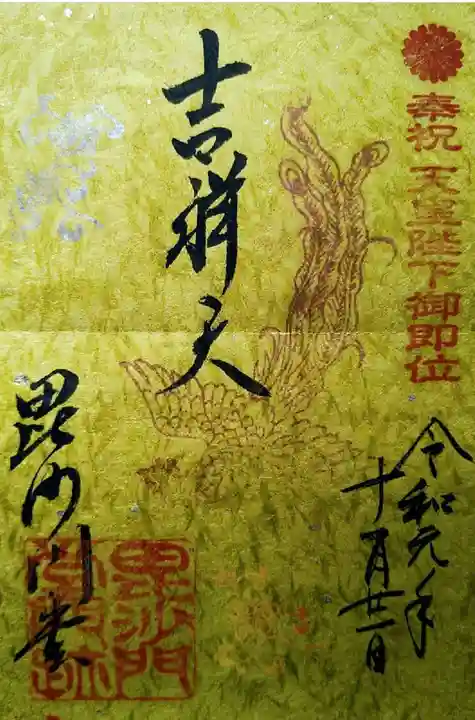 奉祝 天皇陛下御即位
令和元年
十月廿二日
吉祥天
毘沙门堂
毘沙門